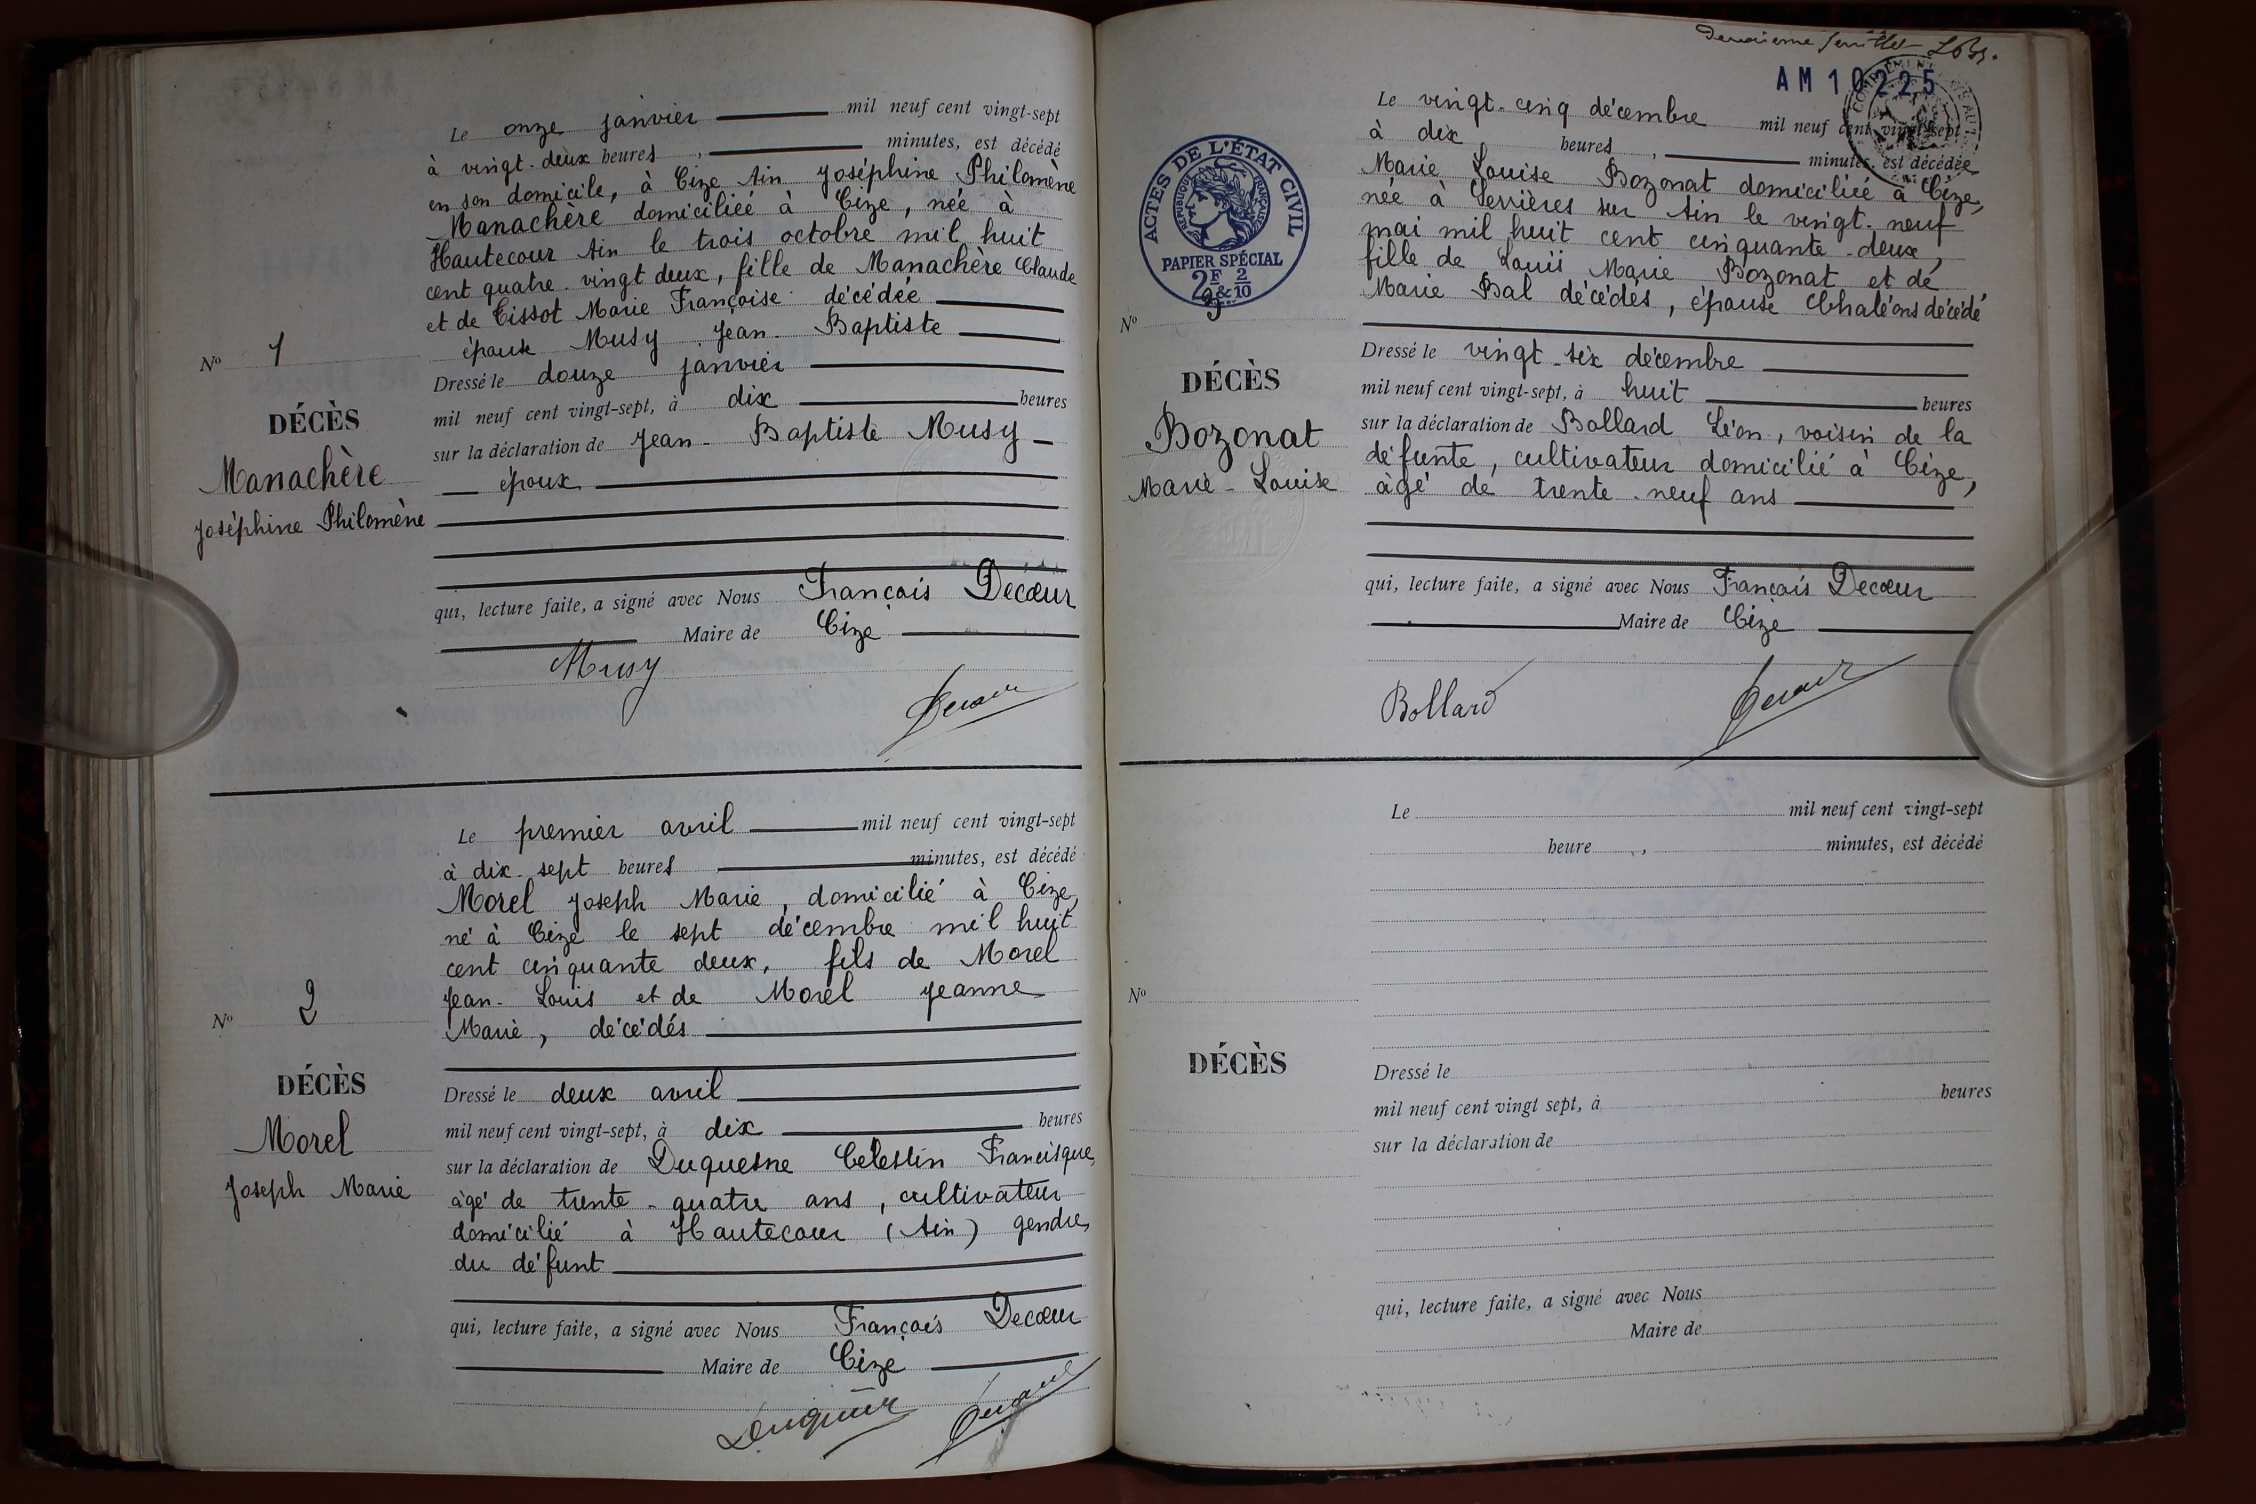 Le onze janvier mil neuf cent vingt-sept
à vingt-deux heures, minutes, est décédé
en son domicile, à Cize Ain Joséphine Philomène
Manachère domiciliée à Cize, née à
Hautecour Ain le trois octobre mil huit
cent quatre-vingt deux, fille de Manachère Claude
et de Tissot Marie Françoise décédée
épouse Musy Jean-Baptiste
Dressé le douze janvier
mil neuf cent vingt-sept, à dix heures
sur la déclaration de Jean-Baptiste Musy
époux
qui, lecture faite, a signé avec Nous François Decœur
Maire de Cize
Musy
Decœur
No 1
DÉCÈS
Manachère
Joséphine Philomène
Le premier avril mil neuf cent vingt-sept
à dix-sept heures minutes, est décédé
Morel Joseph Marie, domicilié à Cize,
né à Cize le sept décembre mil huit
cent cinquante deux, fils de Morel
Jean-Louis et de Morel Jeanne
Marie, décédés
Dressé le deux avril
mil neuf cent vingt-sept, à dix heures
sur la déclaration de Duquesne Celestin Francisque,
âgé de trente-quatre ans, cultivateur
domicilié à Hautecour (Ain) gendre
du défunt
qui, lecture faite, a signé avec Nous François Decœur
Maire de Cize
Decœur
No 2
DÉCÈS
Morel
Joseph Marie
AM 10225
ACTES DE L'ÉTAT CIVIL
RÉPUBLIQUE FRANÇAISE
PAPIER SPÉCIAL
2F & 2/10
Le vingt-cinq décembre mil neuf cent vingt-sept
à dix heures, minutes, est décédée
Marie Louise Bozonat domiciliée à Cize,
née à Serrières sur Ain le vingt-neuf
mai mil huit cent cinquante-deux,
fille de Louis Marie Bozonat et de
Marie Bal décédés, épouse Chaléons décédé
Dressé le vingt-six décembre
mil neuf cent vingt-sept, à huit heures
sur la déclaration de Bollard Léon, voisin de la
défunte, cultivateur domicilié à Cize,
âgé de trente-neuf ans
qui, lecture faite, a signé avec Nous François Decœur
Maire de Cize
Bollard
Decœur
No 3
DÉCÈS
Bozonat
Marie-Louise
Le mil neuf cent vingt-sept
heure, minutes, est décédé
No
DÉCÈS
Dressé le
mil neuf cent vingt sept, à heures
sur la déclaration de
qui, lecture faite, a signé avec Nous
Maire de